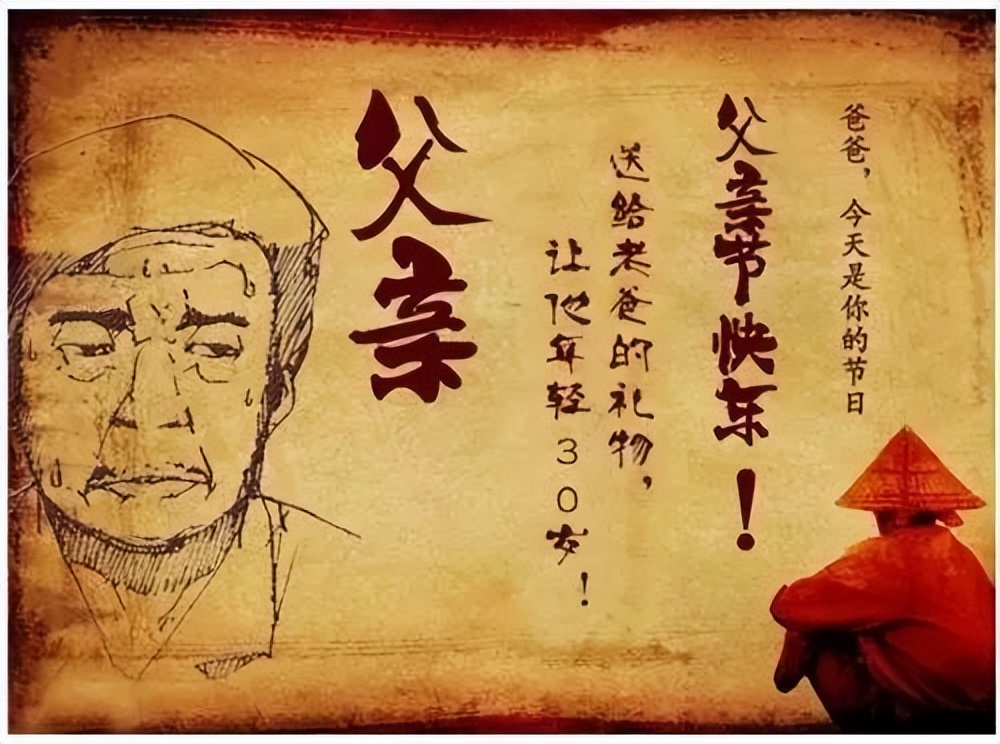 爸爸，今天是你的节日
父亲节快乐！
送给老爸的礼物，
让他年轻30岁！
父亲